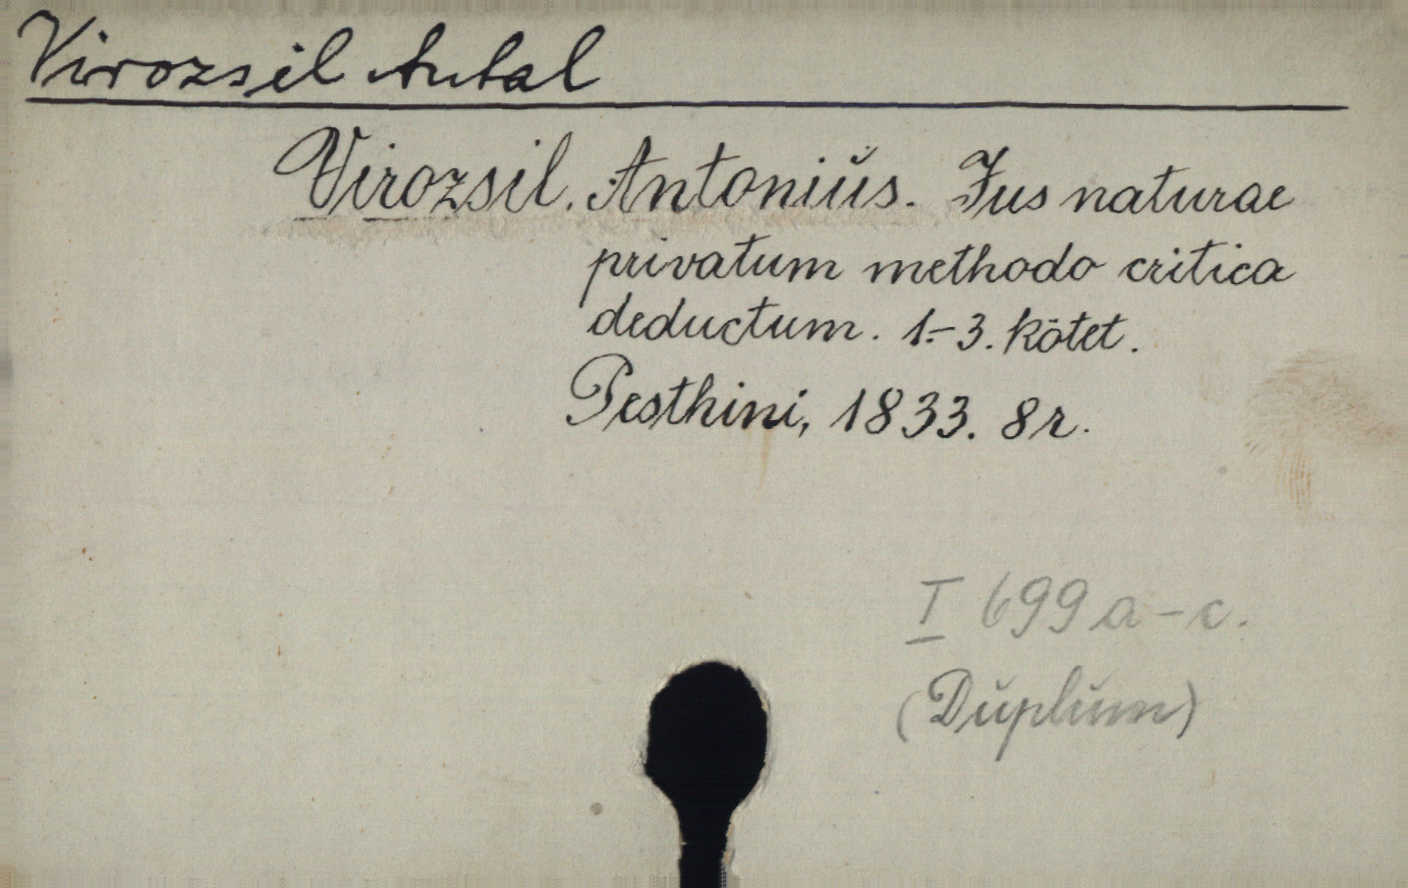 Virozsil Antal
Virozsil. Antoniŭs. Jus naturae
privatum methodo critica
deductum. 1.-3. kötet.
Pesthini, 1833. 8r.
I 699a-c.
(Dŭplŭm)